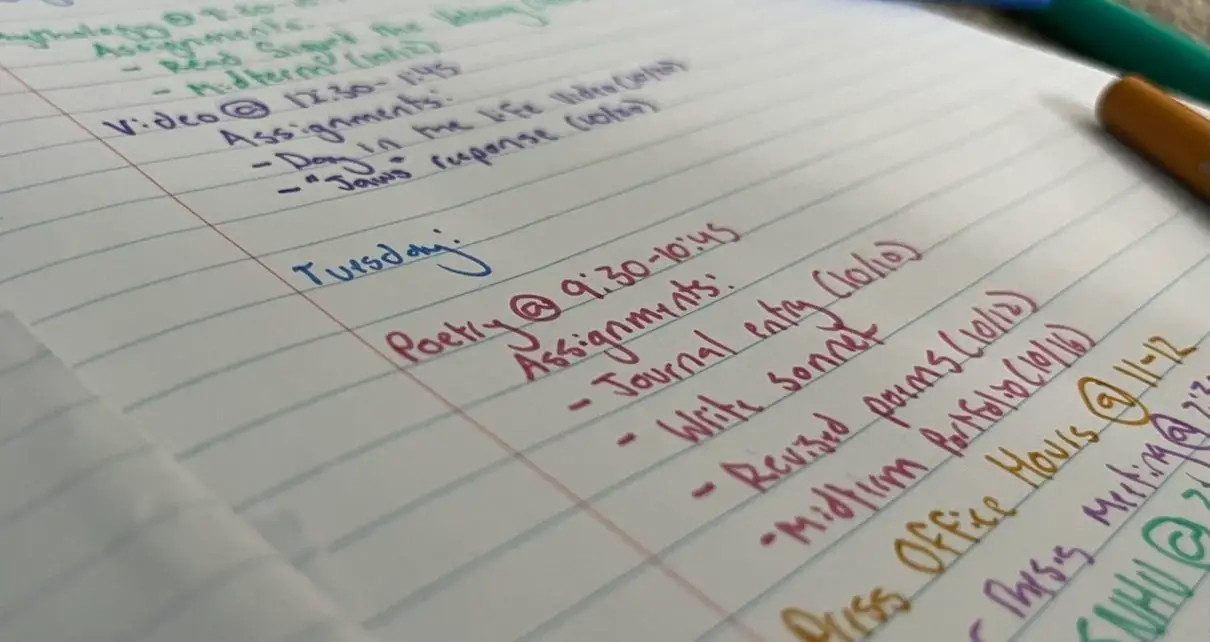 Assignments
- Midterm (10/12)
Video @ 12:30-1:45
Assignments:
- Day in the Life Video (10/10)
- "Jaws" response (10/20)
Tuesday:
Poetry @ 9:30-10:45
Assignments:
- Journal entry (10/10)
- Write Sonnet
- Revised poems (10/12)
- Midterm Portfolio (10/16)
Office Hours @ 11-12
Thesis Meeting @
@